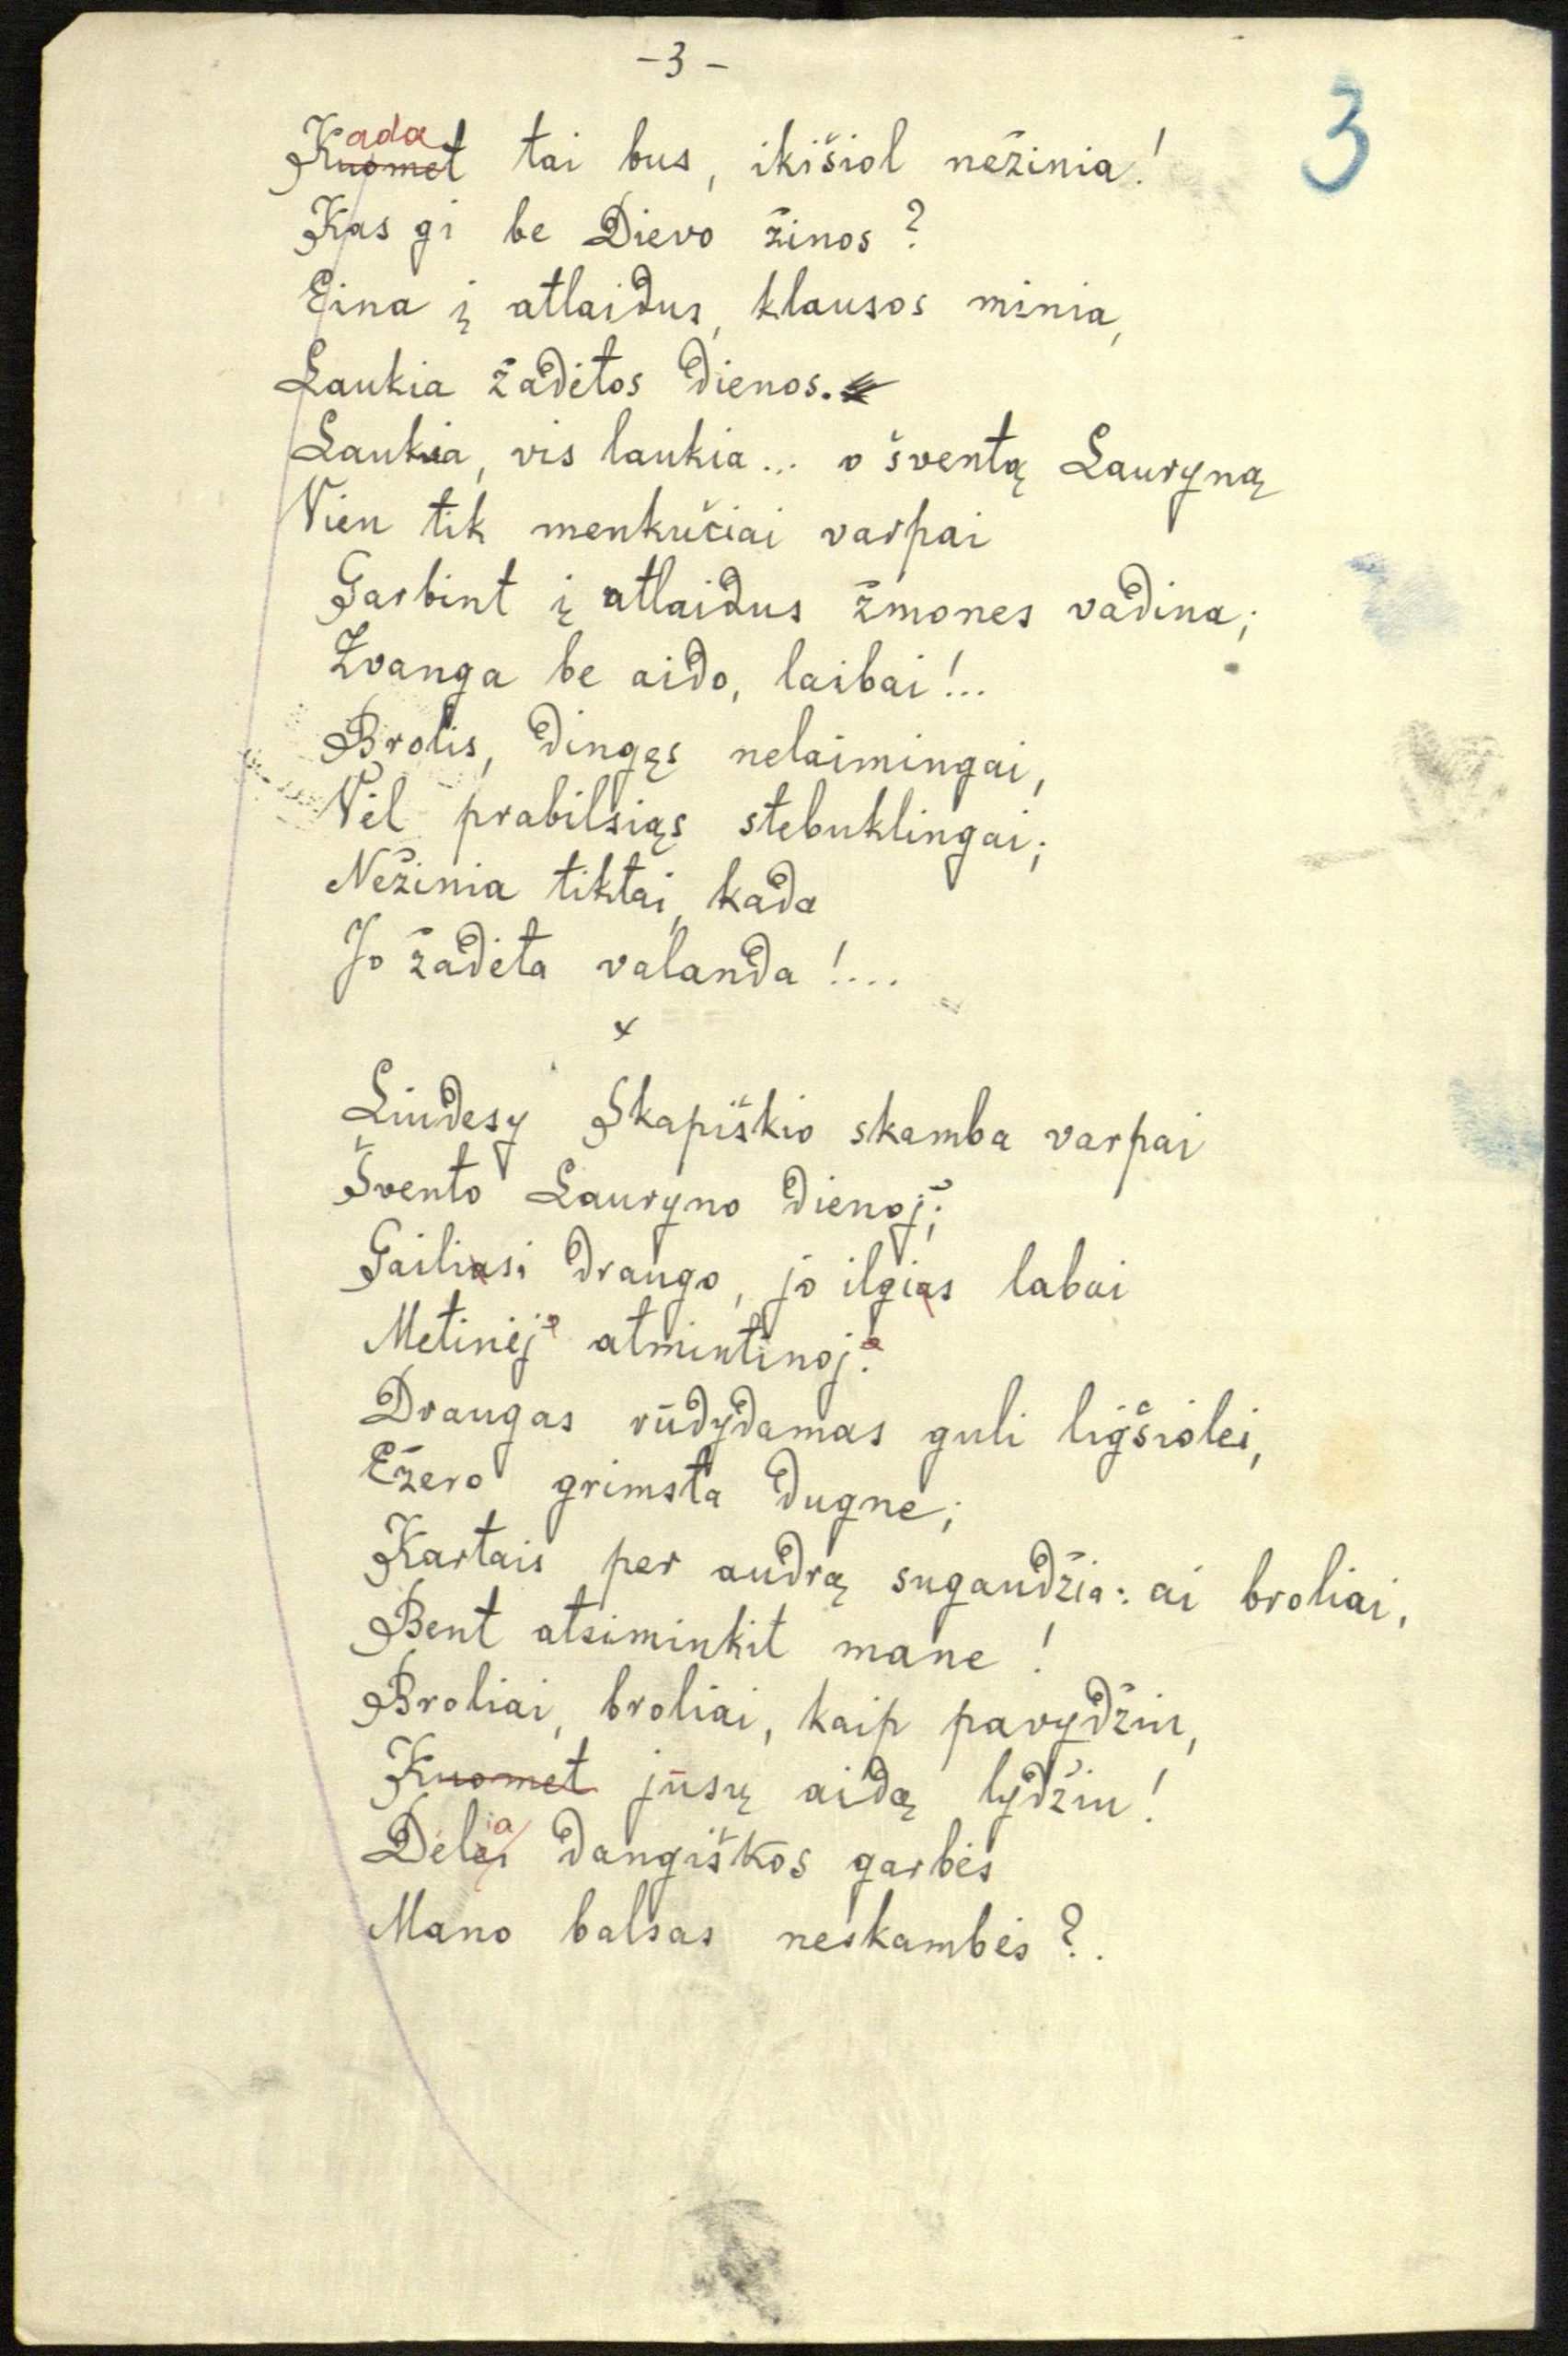 -3-
3
Kada
Kuomet tai bus, ikišiol nežinia!
Kas gi be Dievo žinos?
Eina į atlaidus, klausos minia,
Laukia žadėtos dienos.
Laukia, vis laukia... o šventą Lauryną
Vien tik menkučiai varpai
Garbint į atlaidus žmones vadina;
Zvanga be aido, laibai!...
Brolis, dingęs nelaimingai,
Vėl prabilsiąs stebuklingai;
Nežinia tiktai, kada
Jo žadėta valanda!....
x
Liūdesy Skapiškio skamba varpai
Švento Lauryno dienoj;
Gailiasi draugo, jo ilgias labai
Metinėje atmintinoje.
Draugas rūdydamas guli ligšiolei,
Ežero grimsta dugne;
Kartais per audrą sugaudžia: ai broliai,
Bent atsiminkit mane!
Broliai, broliai, kaip pavydžiu,
Kuomet jūsų aidą lydžiu!
Dėlei dangiškos garbės
Mano balsas neskambės?.